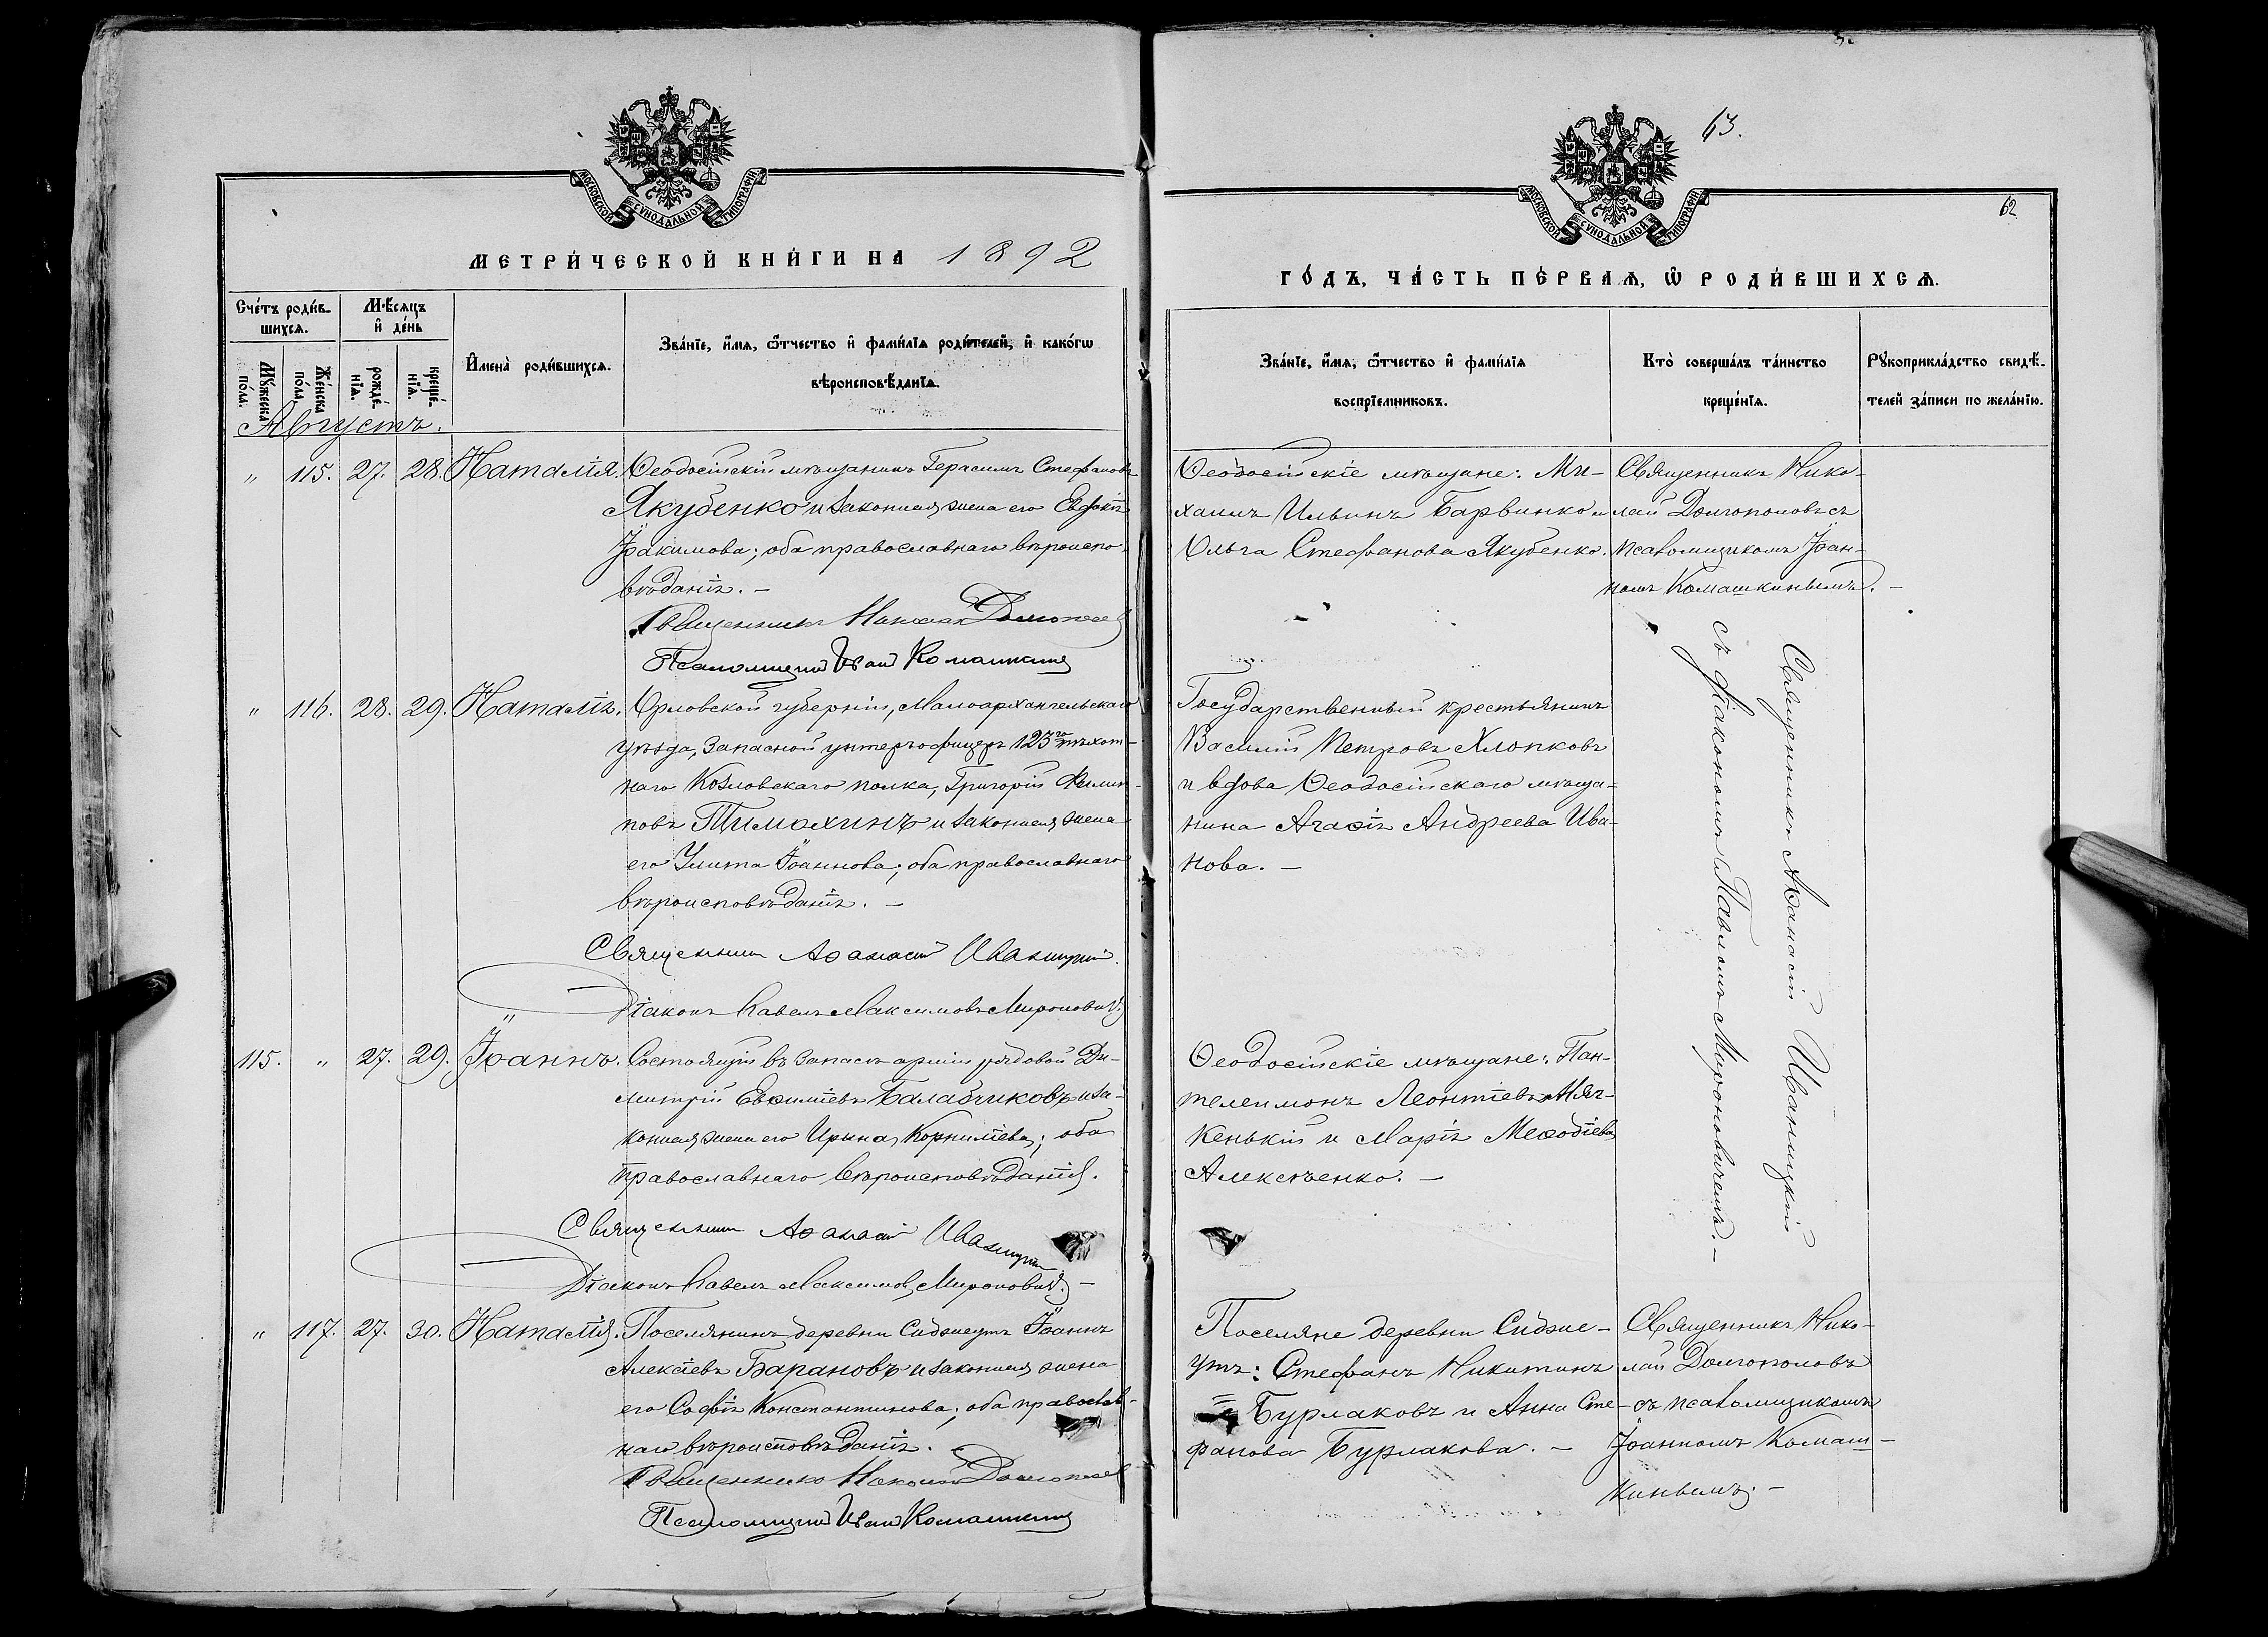 63.
62
МОСКОВСКОЙ СѴНОДАЛЬНОЙ ТИПОГРАФІИ
МОСКОВСКОЙ СѴНОДАЛЬНОЙ ТИПОГРАФІИ
МЕТРИ́ЧЕСКОЙ КНИ́ГИ НА 1892
ГО́ДЪ, ЧА́СТЬ ПЕ́РВАѦ, Ѿ РОДИ́ВШИХСѦ.
Сче́тъ роди́в-
шихсѧ.
Мѣ́сѧцъ
и҆ де́нь
Мꙋ́жеска
по́ла.
Же́нска
по́ла.
рожде́-
нїѧ.
креще́-
нїѧ.
И҆мена̀ роди́вшихсѧ.
Зва́нїе, и҆́мѧ, ѻ҆́тчество и҆ фами́лїѧ роди́телей, и҆ како́гѡ
вѣроисповѣ́данїѧ.
Зва́нїе, и҆́мѧ, ѻ҆́тчество и҆ фами́лїѧ
воспрїе́мниковъ.
Кто̀ соверша́лъ та́инство
креще́нїѧ.
Рꙋкоприкла́дство свидѣ́-
телей за́писи по жела́нїю.
Августъ.
" 115. 27. 28. Наталія. Ѳеодосійскій мѣщанинъ Герасимъ Стефановъ
Якубенко и законная жена его Евдокія
Іоакимова; оба православнаго вѣроиспо-
вѣданія. –
Священникъ Николай Долгополовъ
Псаломщикъ Иван Комашкинъ
Ѳеодосійскіе мѣщане: Ми-
хаилъ Ильинъ Барвинко и
Ольга Стефанова Якубенко.
Священникъ Нико-
лай Долгополовъ съ
псаломщикомъ Іоан-
номъ Комашкинымъ. –
" 116. 28. 29. Наталія. Орловской губерніи, Малоархангельскаго
уѣзда, запасной унтеръ-офицеръ 123го пѣхот-
наго Козловскаго полка, Григорій Филип-
повъ Тимохинъ и законная жена
его Улита Іоаннова; оба православнаго
вѣроисповѣданія. –
Священникъ Аѳанасій Иваницкій.
Діаконъ Павелъ Максимовъ Мироновичъ
Государственный крестьянинъ
Василій Петровъ Хлопковъ
и вдова Ѳеодосійскаго мѣща-
нина Агаѳія Андреева Ива-
нова. –
Священникъ Аѳанасій Иваницкій
съ діакономъ Павломъ Мироновичемъ. –
115. " 27. 29. Іоаннъ. Состоящій въ запасѣ арміи рядовой Ди-
митрій Евѳиміевъ Балабчиковъ и за-
конная жена его Ирина Корниліева; оба
православнаго вѣроисповѣданія.
Священникъ Аѳанасій Иваницкій
Діаконъ Павелъ Максимовъ Мироновичъ. –
Ѳеодосійскіе мѣщане: Пан-
телеимонъ Леонтіевъ Мяч-
кенькій и Марія Меѳодіева
Алексѣенко. –
" 117. 27. 30. Наталія. Поселянинъ деревни Сиджеутъ Іоаннъ
Алексіевъ Барановъ и законная жена
его Софія Константинова; оба православ-
наго вѣроисповѣданія. –
Священникъ Николай Долгополовъ
Псаломщикъ Иван Комашкинъ
Поселяне деревни Сиджe-
утъ: Стефанъ Никитинъ
Бурлаковъ и Анна Сте-
фанова Бурлакова. –
Священникъ Нико-
лай Долгополовъ
съ псаломщикомъ
Іоанномъ Комаш-
кинымъ. –